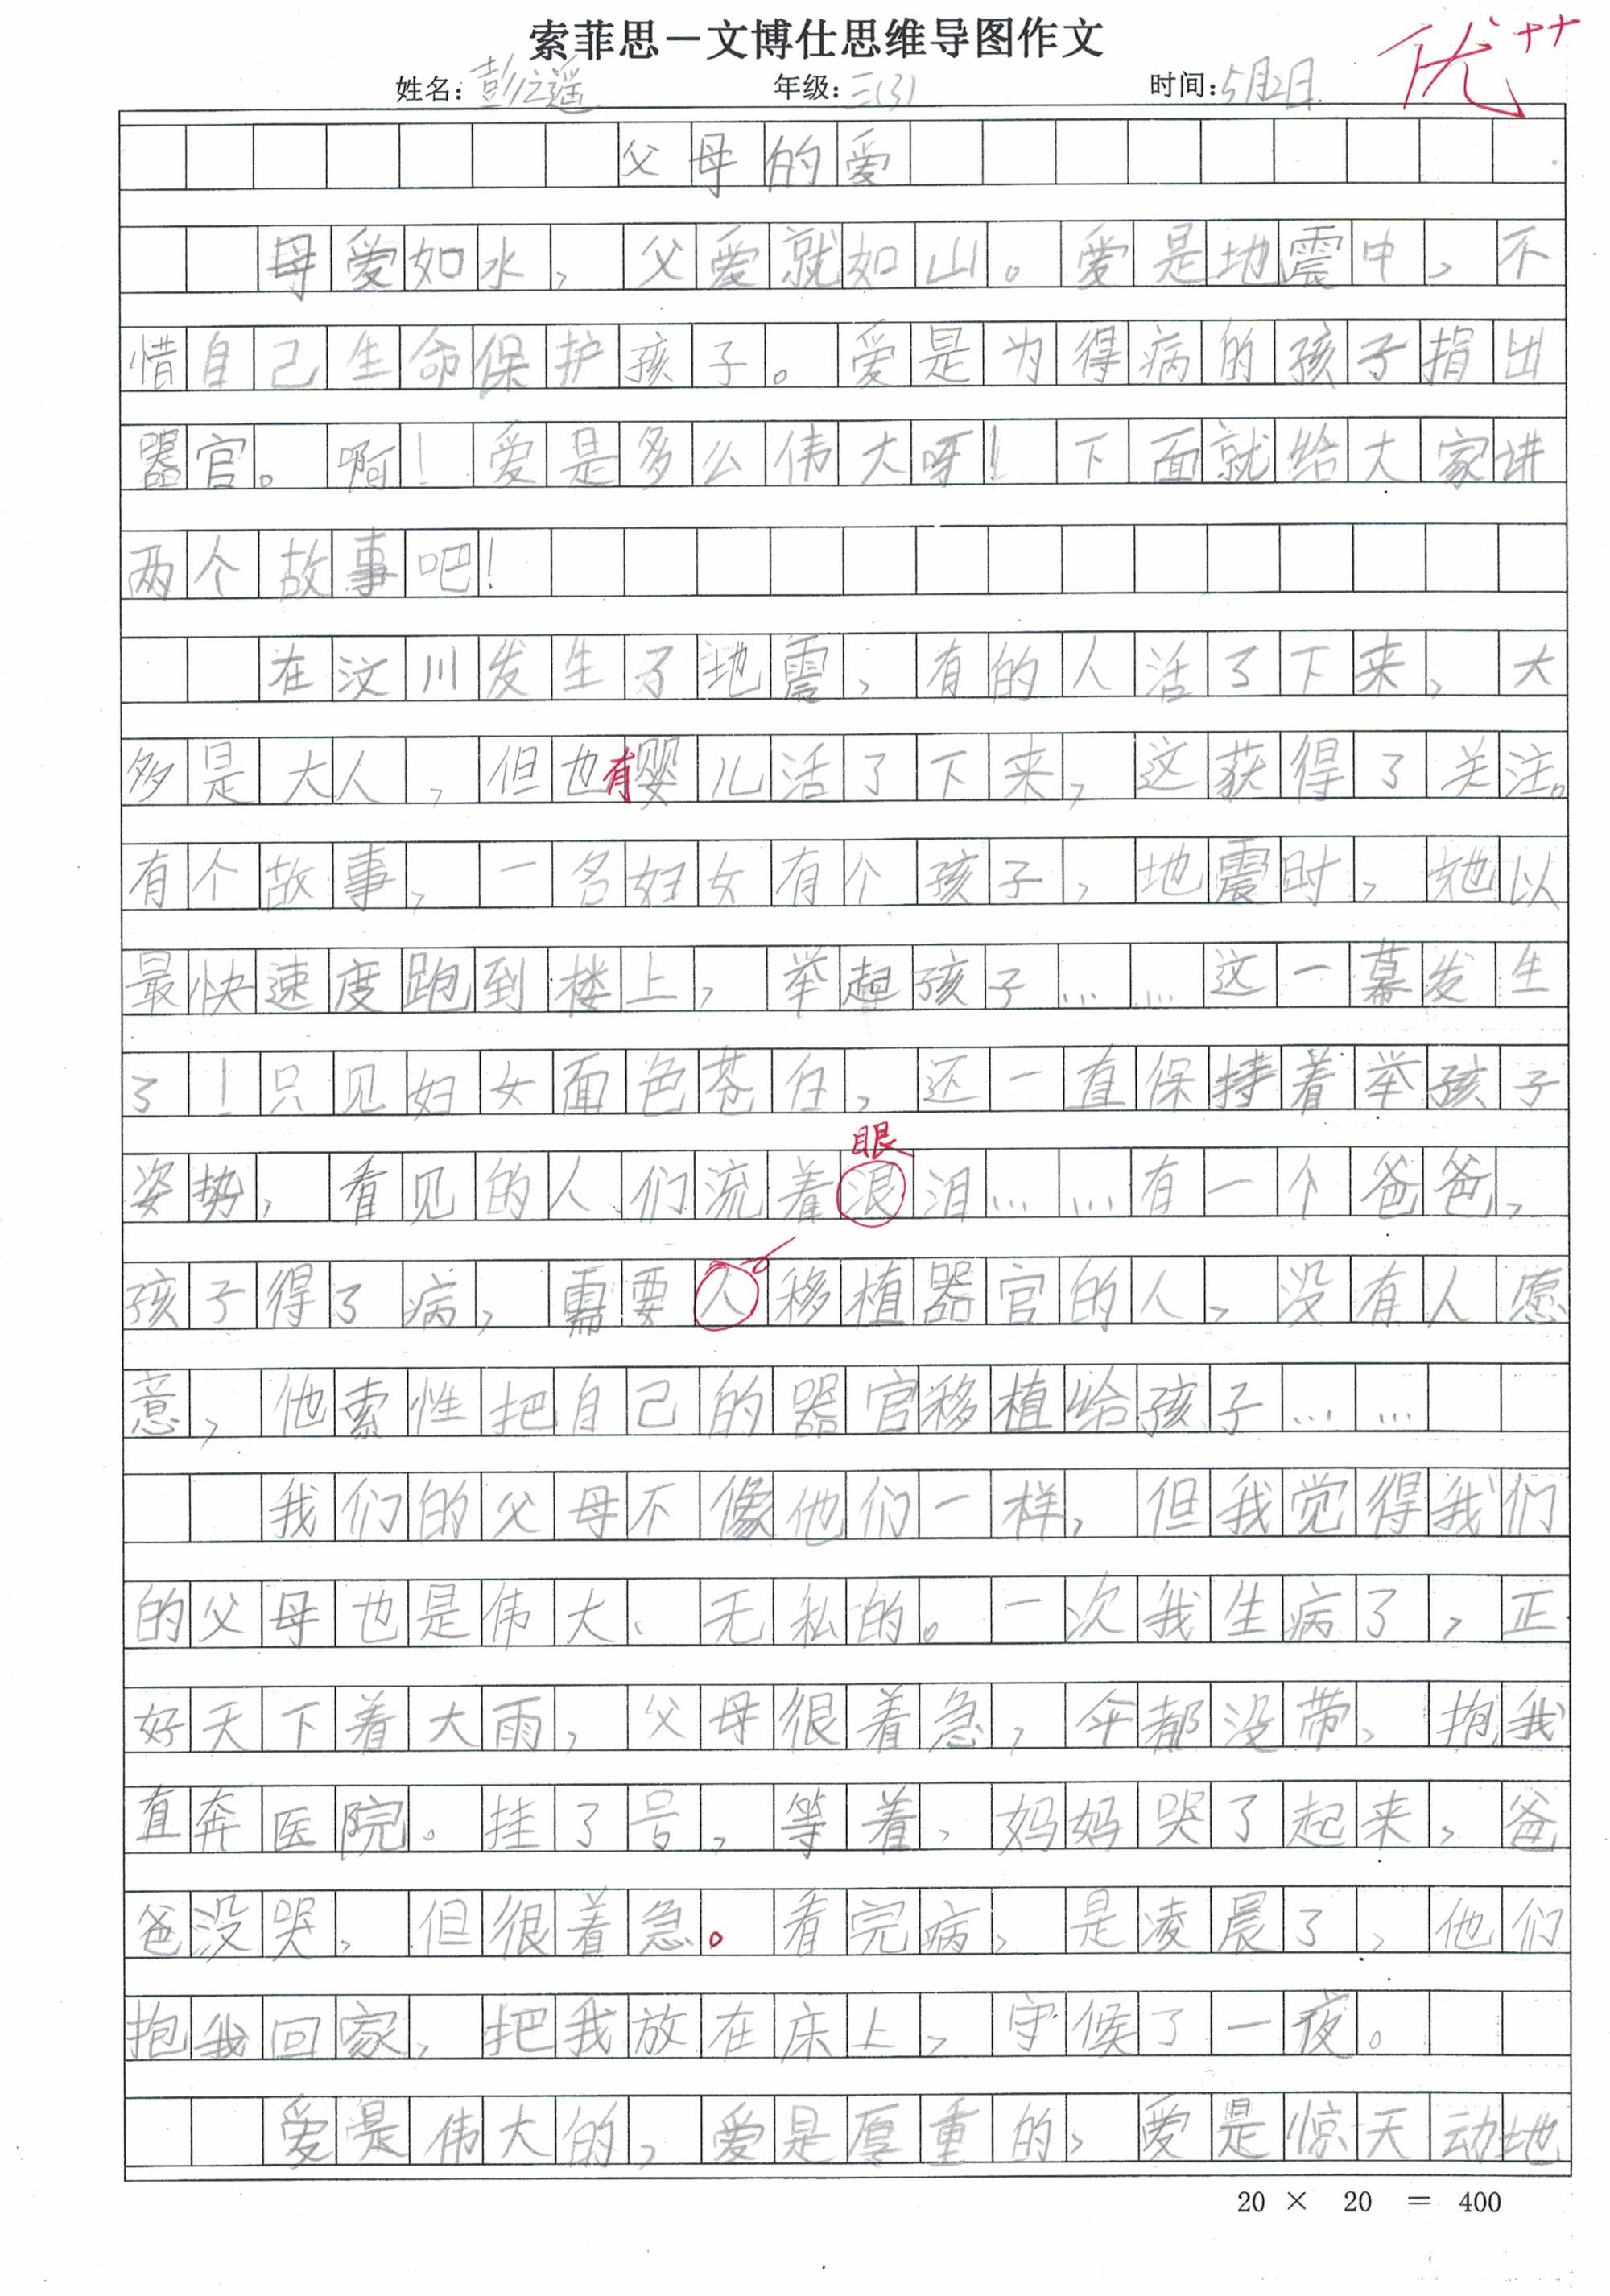 索菲思－文博仕思维导图作文
优++
姓名：彭之遥 年级：三（3） 时间：5月2日
父母的爱
母爱如水，父爱就如山。爱是地震中，不
惜自己生命保护孩子。爱是为得病的孩子捐出
器官。啊！爱是多么伟大呀！下面就给大家讲
两个故事吧！
在汶川发生了地震，有的人活了下来，大
多是大人，但也有婴儿活了下来，这获得了关注。
有个故事，一名妇女有个孩子，地震时，她以
最快速度跑到楼上，举起孩子……这一幕发生
了！只见妇女面色苍白，还一直保持着举孩子
眼
姿势，看见的人们流着泪……有一个爸爸，
孩子得了病，需要人移植器官的人，没有人愿
意，他索性把自己的器官移植给孩子……
我们的父母不像他们一样，但我觉得我们
的父母也是伟大、无私的。一次我生病了，正
好天下着大雨，父母很着急，伞都没带，抱我
直奔医院。挂了号，等着，妈妈哭了起来，爸
爸没哭，但很着急。看完病，是凌晨了，他们
抱我回家，把我放在床上，守候了一夜。
爱是伟大的，爱是厚重的，爱是惊天动地
20 × 20 = 400